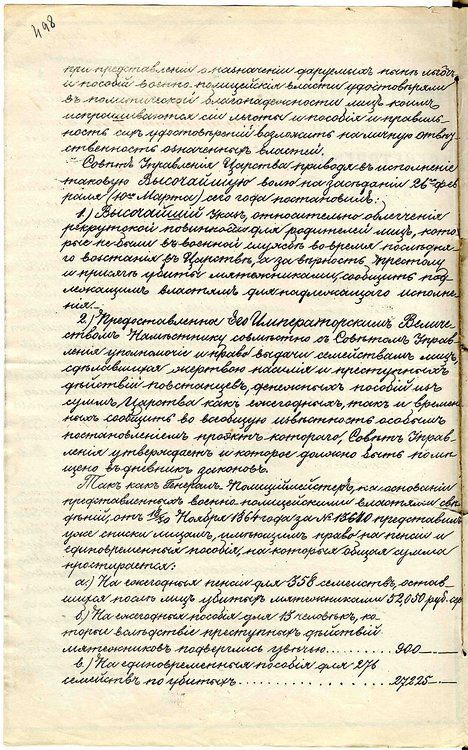 498
при представленіи о назначеніи даруемыхъ нынѣ льготъ
и пособій военно-полицейскія власти удостовѣряли
въ политической благонадежности лицъ коимъ
испрашиваются сіи льготы и пособія и правиль-
ность сихъ удостовѣреній возложить на личную отвѣт-
ственность означенныхъ властей.
Совѣтъ Управленія Царства приводя въ исполненіе
таковую Высочайшую волю на засѣданіи 26го Фев-
раля (10го Марта) сего года постановилъ:
1) Высочайшій Указъ, относительно облегченія
рекрутской повинности для родителей лицъ, кото-
рые не были въ военной службѣ во время послѣдня-
го возстанія въ Царствѣ, а за вѣрность Престолу
и присягѣ убиты мятежниками, сообщить под-
лежащимъ властямъ для надлежащаго исполне-
нія.
2) Предоставленна Его Императорскимъ Величе-
ствомъ Намѣстнику совмѣстно съ Совѣтомъ Управ-
ленія уполномочіи и право выдачи семействамъ лицъ,
сдѣлавшихся жертвою насилія и преступныхъ
дѣйствій повстанцевъ, денежныхъ пособій изъ
суммъ Царства какъ ежегодныхъ, такъ и времен-
ныхъ сообщить во всеобщую извѣстность особымъ
постановленіемъ проэктъ котораго, Совѣтъ Управ-
ленія утверждаетъ и которое должно быть помѣ-
щено въ дневникъ законовъ.
Такъ какъ Генералъ-Полицiймейстеръ, на основаніи
представленныхъ военно-полицейскими властями свѣ-
дѣній, отъ 18/30 Ноября 1864 года за № 13680 представилъ
уже списки лицамъ, имѣющимъ право на пенсіи и
единовременныя пособія, на которыхъ общая сумма
простирается:
а.) На ежегодныя пенсіи для 358 семействъ, остав-
шихся послѣ лицъ убитыхъ мятежниками 52,050 руб. сер.
б.) На ежегодныя пособія для 15 человѣкъ, ко-
торые вслѣдствіе преступныхъ дѣйствій
мятежниковъ подверглись увѣчью......... 900 — —
в.) На единовременныя пособія для 276
семействъ по убитыхъ.................. 27225 — —